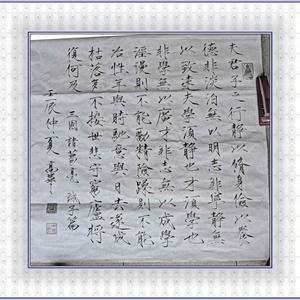 夫君子之行靜以脩身儉以養
德非淡泊無以明志非寧靜無
以致遠夫學須靜也才須學也
非學無以廣才非志無以成學
淫漫則不能勵精險躁則不能
冶性年與時馳意與日去遂成
枯落多不接世悲守窮廬將
復何及 三國諸葛亮 誡子篇
壬辰仲夏